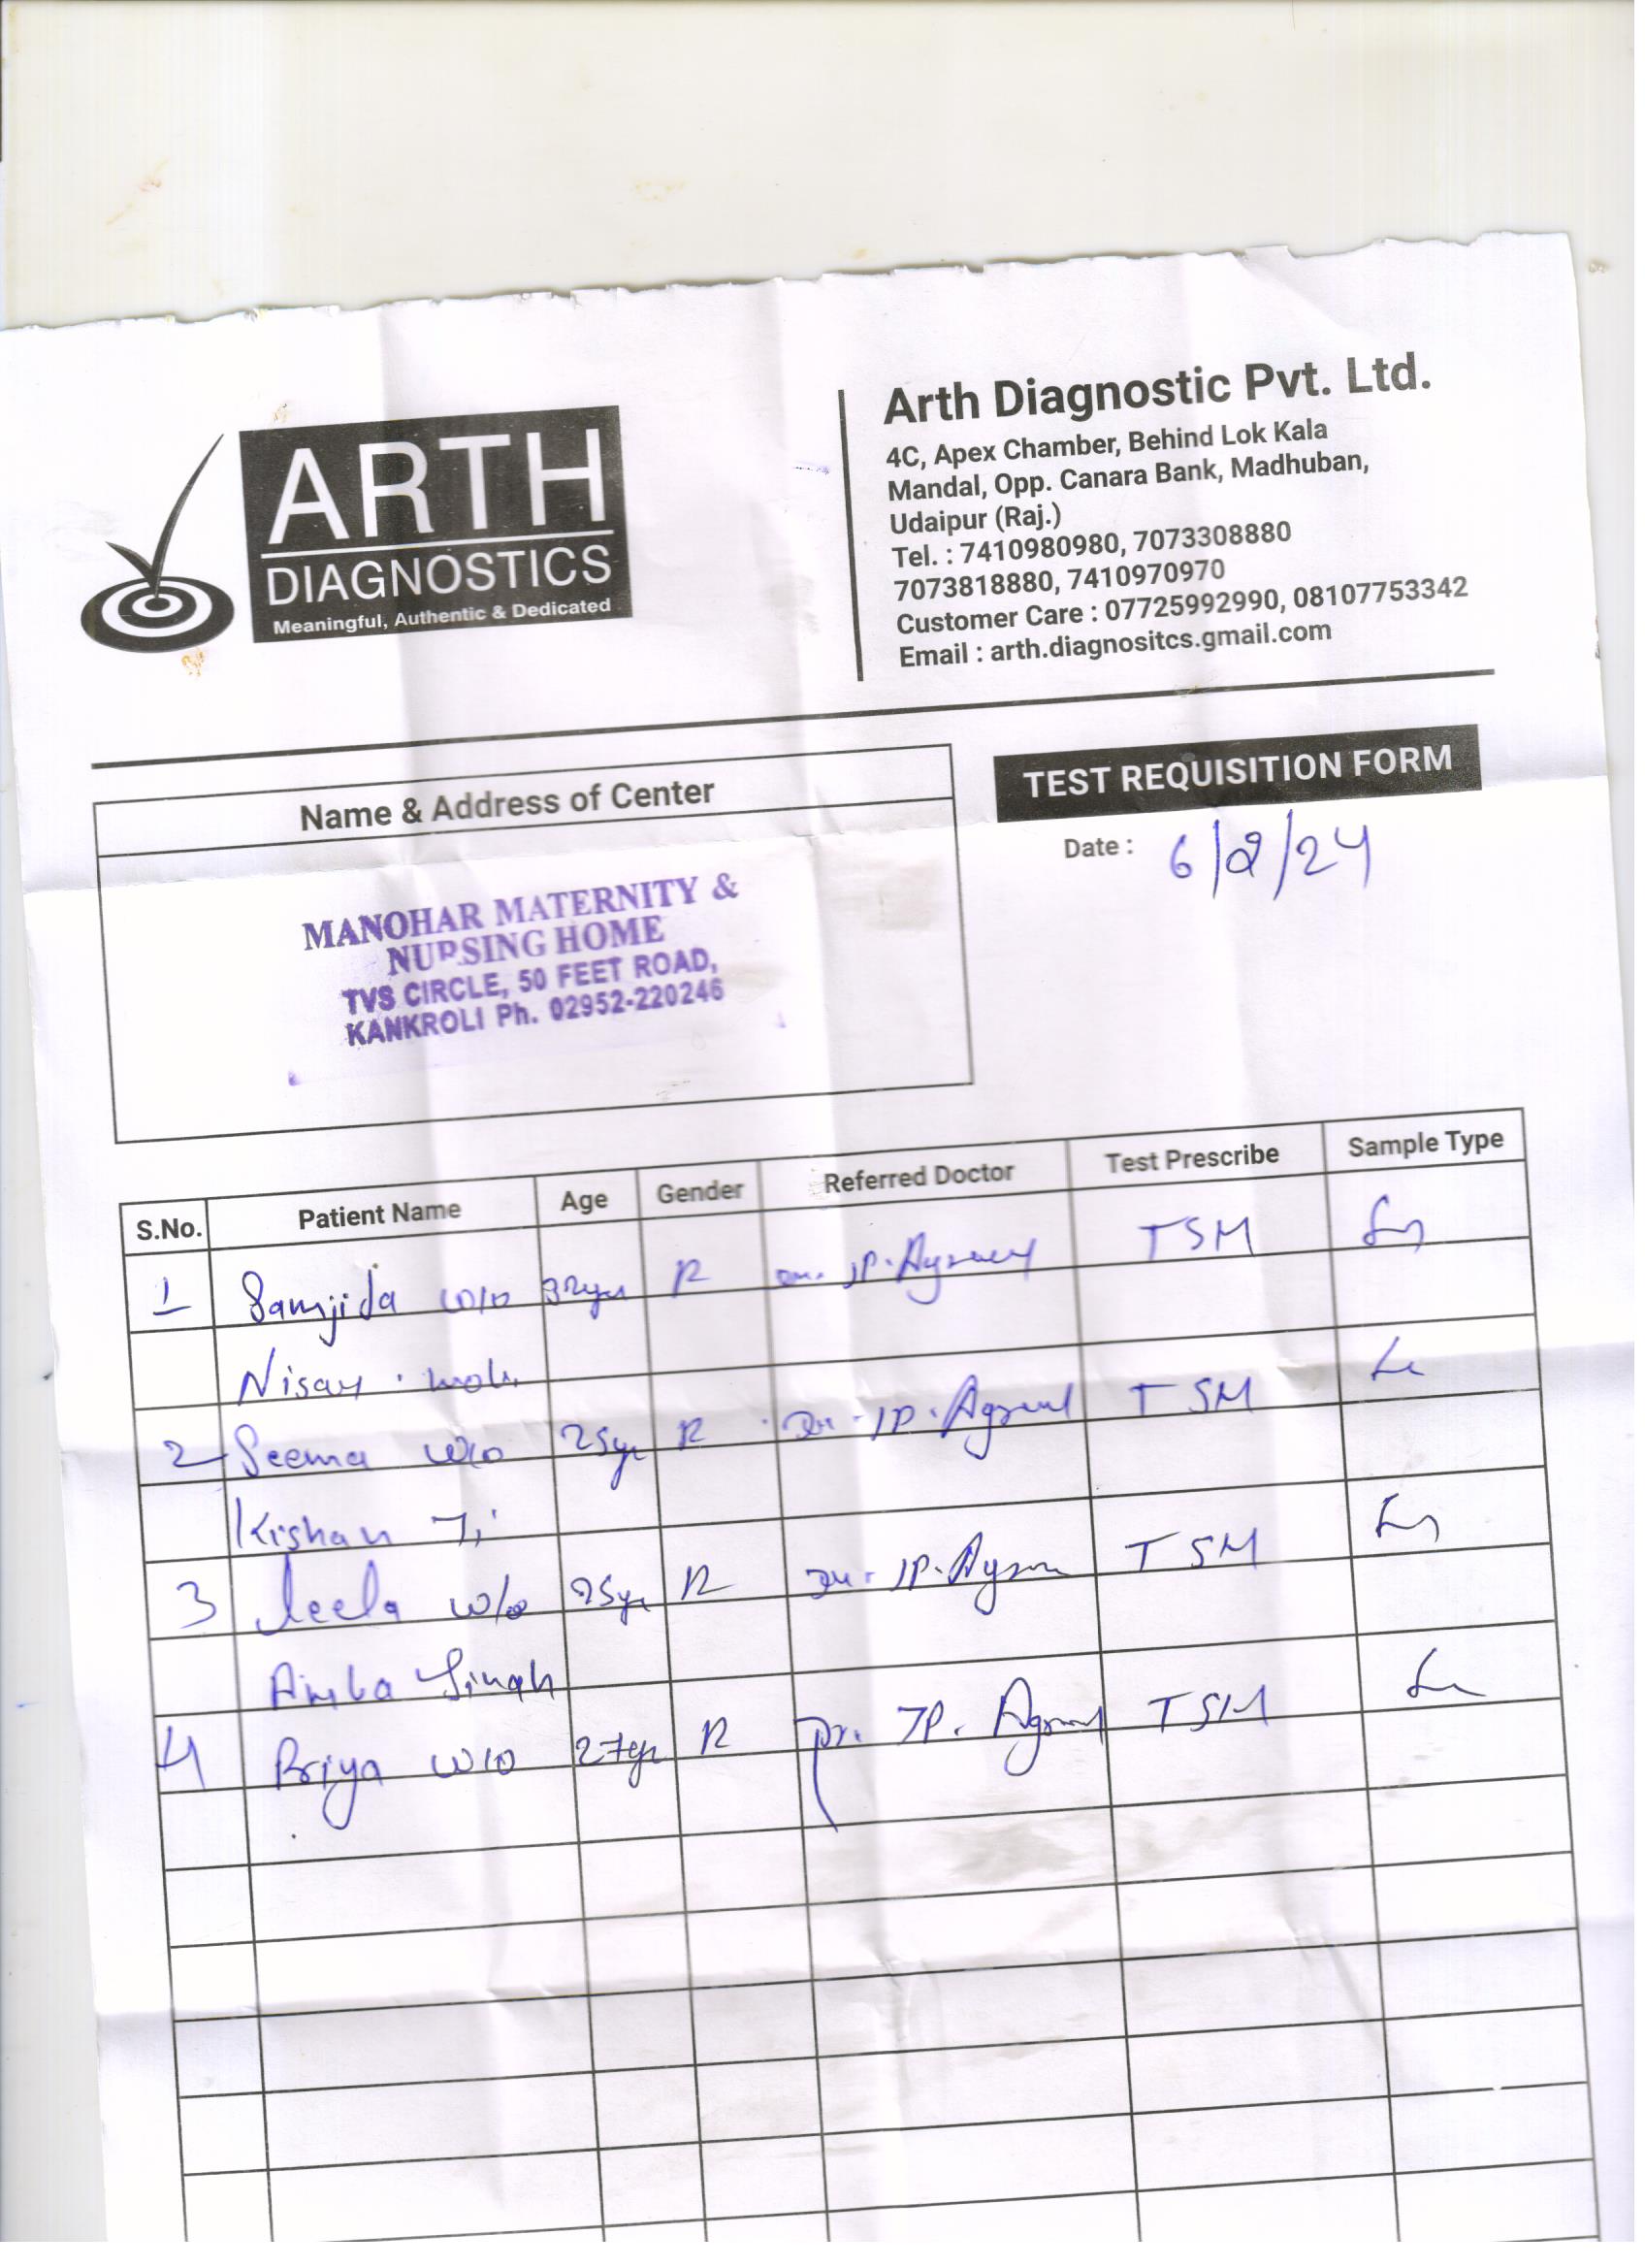 ARTH
DIAGNOSTICS
Meaningful, Authentic & Dedicated
Arth Diagnostic Pvt. Ltd.
4C, Apex Chamber, Behind Lok Kala
Mandal, Opp. Canara Bank, Madhuban,
Udaipur (Raj.)
Tel. : 7410980980, 7073308880
7073818880, 7410970970
Customer Care : 07725992990, 08107753342
Email : arth.diagnositcs.gmail.com
Name & Address of Center
TEST REQUISITION FORM
Date : 6/2/24
MANOHAR MATERNITY &
NURSING HOME
TVS CIRCLE, 50 FEET ROAD,
KANKROLI Ph. 02952-220246
S.No. Patient Name Age Gender Referred Doctor Test Prescribe Sample Type
1 Samjida w/o 32yr JP. TSM
Nisar
2 Seema w/o 25yr Dr. JP. Agrawal TSM
Kishan Ji
3 leela w/o 25yr Dr. JP. TSM
Singh
4 Priya w/o 27yr Dr. JP. Agrawal TSM